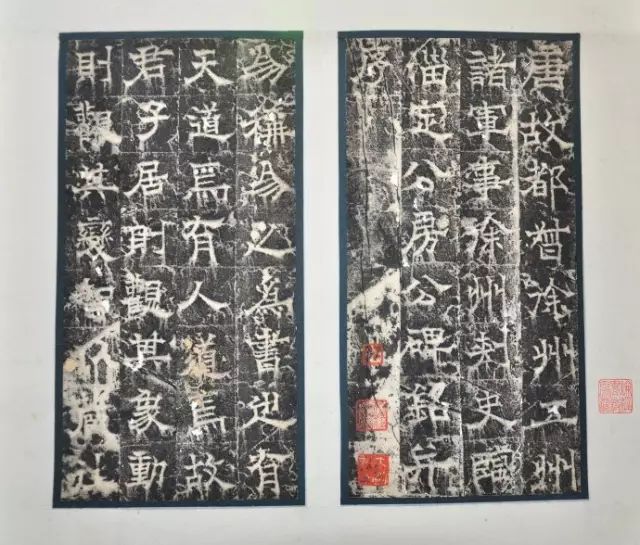 唐故都督徐州五州
諸軍事徐州刺史臨
淄定公房公碑銘并
序
易稱易之爲書也有
天道焉有人道焉故
君子居則觀其象動
則觀其變智以藏往